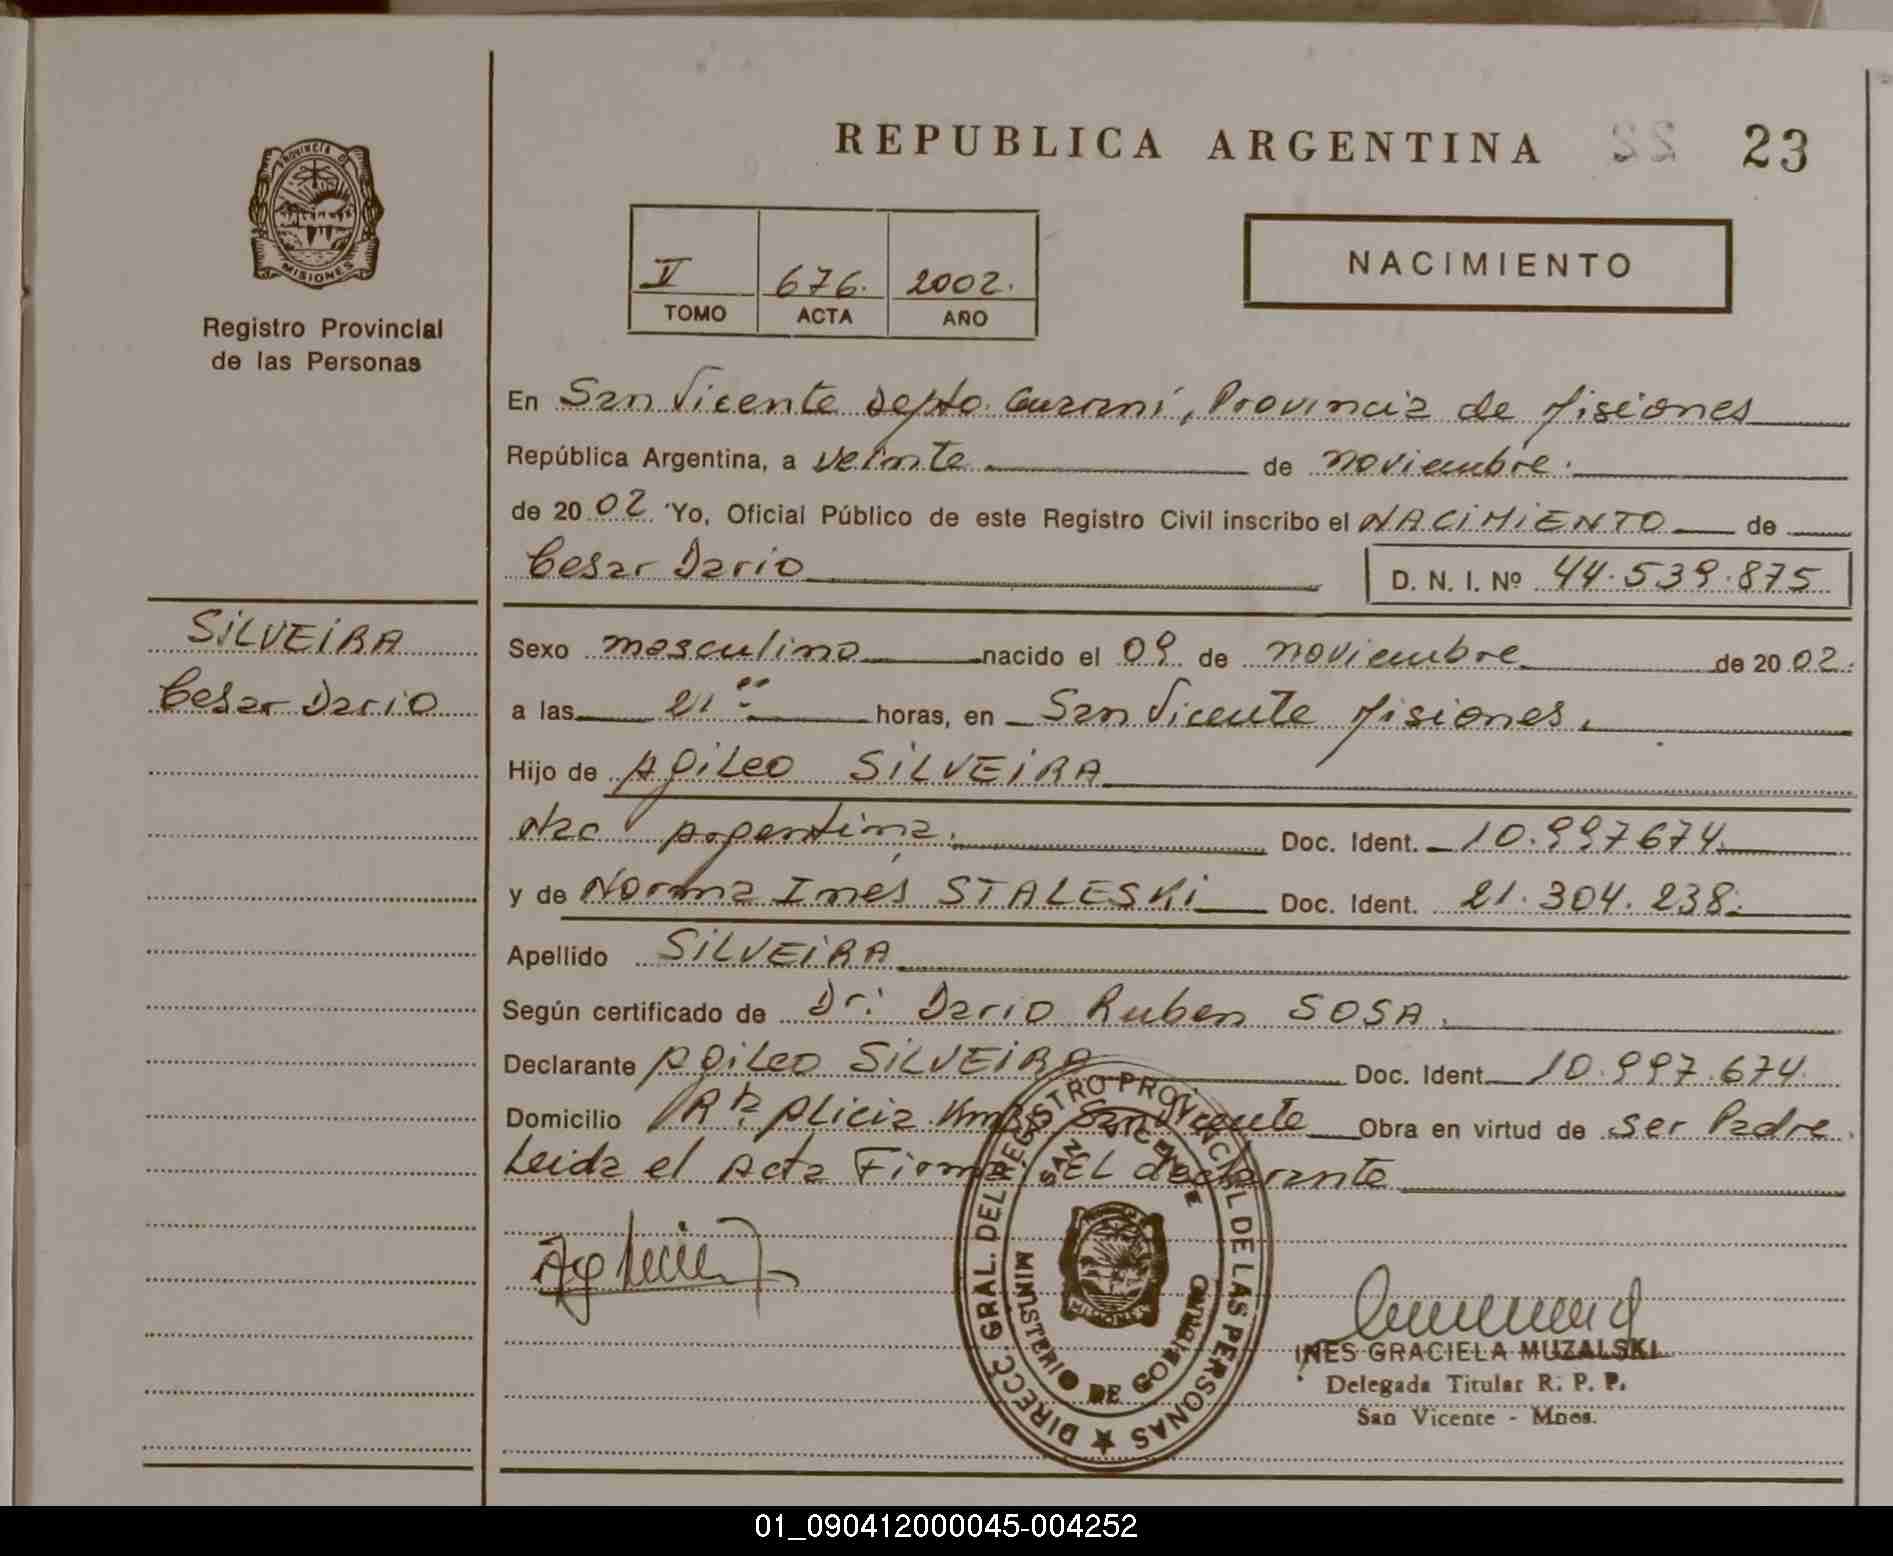 REPUBLICA ARGENTINA 22 23
PROVINCIA D
MISIONES
Registro Provincial
de las Personas
V 676. 2002.
TOMO ACTA AÑO
NACIMIENTO
En San Vicente Depto. Guaraní, Provincia de Misiones
República Argentina, a veinte de noviembre.
de 2002. Yo, Oficial Público de este Registro Civil inscribo el NACIMIENTO de
Cesar Dario D. N. I. Nº 44.539.875
SILVEIRA
Cesar Dario
Sexo masculino nacido el 09 de noviembre de 2002.
a las 21 00 horas, en San Vicente Misiones.
Hijo de Agileo SILVEIRA
Nac Argentina. Doc. Ident. 10.997674.
y de Norma Ines STALESKI Doc. Ident. 21.304.238.
Apellido SILVEIRA
Según certificado de Dr. Dario Ruben SOSA.
Declarante Agileo SILVEIRA Doc. Ident. 10.997.674.
Domicilio Alicia San Vicente Obra en virtud de ser Padre.
Leida el Acta Firma EL declarante
DIRECC. GRAL. DEL REGISTRO PROVINCIAL DE LAS PERSONAS
SAN VICENTE
MINISTERIO DE GOBIERNO
MISIONES
INES GRACIELA MUZALSKI
Delegada Titular R. P. P.
San Vicente - Mnes.
01_090412000045-004252